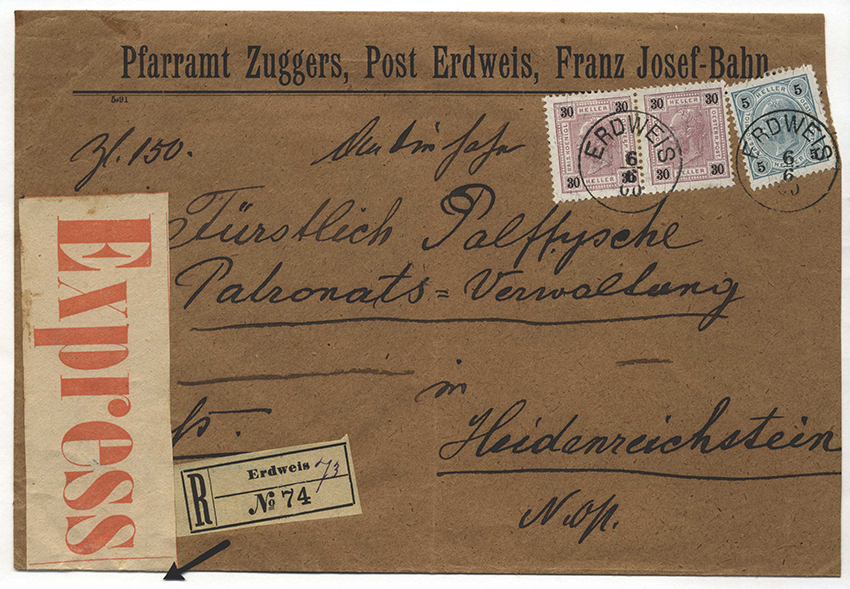 Pfarramt Zuggers, Post Erdweis, Franz Josef-Bahn
5·91
Zl. 150.
30 HELLER 30
30 HELLER 30
30 HELLER 30
30 HELLER 30
5 HELLER 5
5 5
ERDWEIS
6
6
00
ERDWEIS
6
6
Fürstlich Palffysche
Patronats=Verwaltung
in
Heidenreichstein
N.Ö.
Express
R
Erdweis
73
№ 74